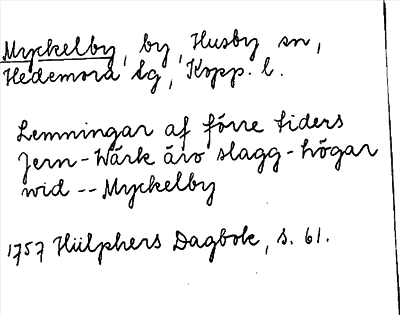 Myckelby, by, Husby sn,
Hedemora tg, Kopp. l.
Lemningar af förre tiders
Jern-Wärk äro slagg-högar
wid -- Myckelby
1757 Hülphers Dagbok, s. 61.